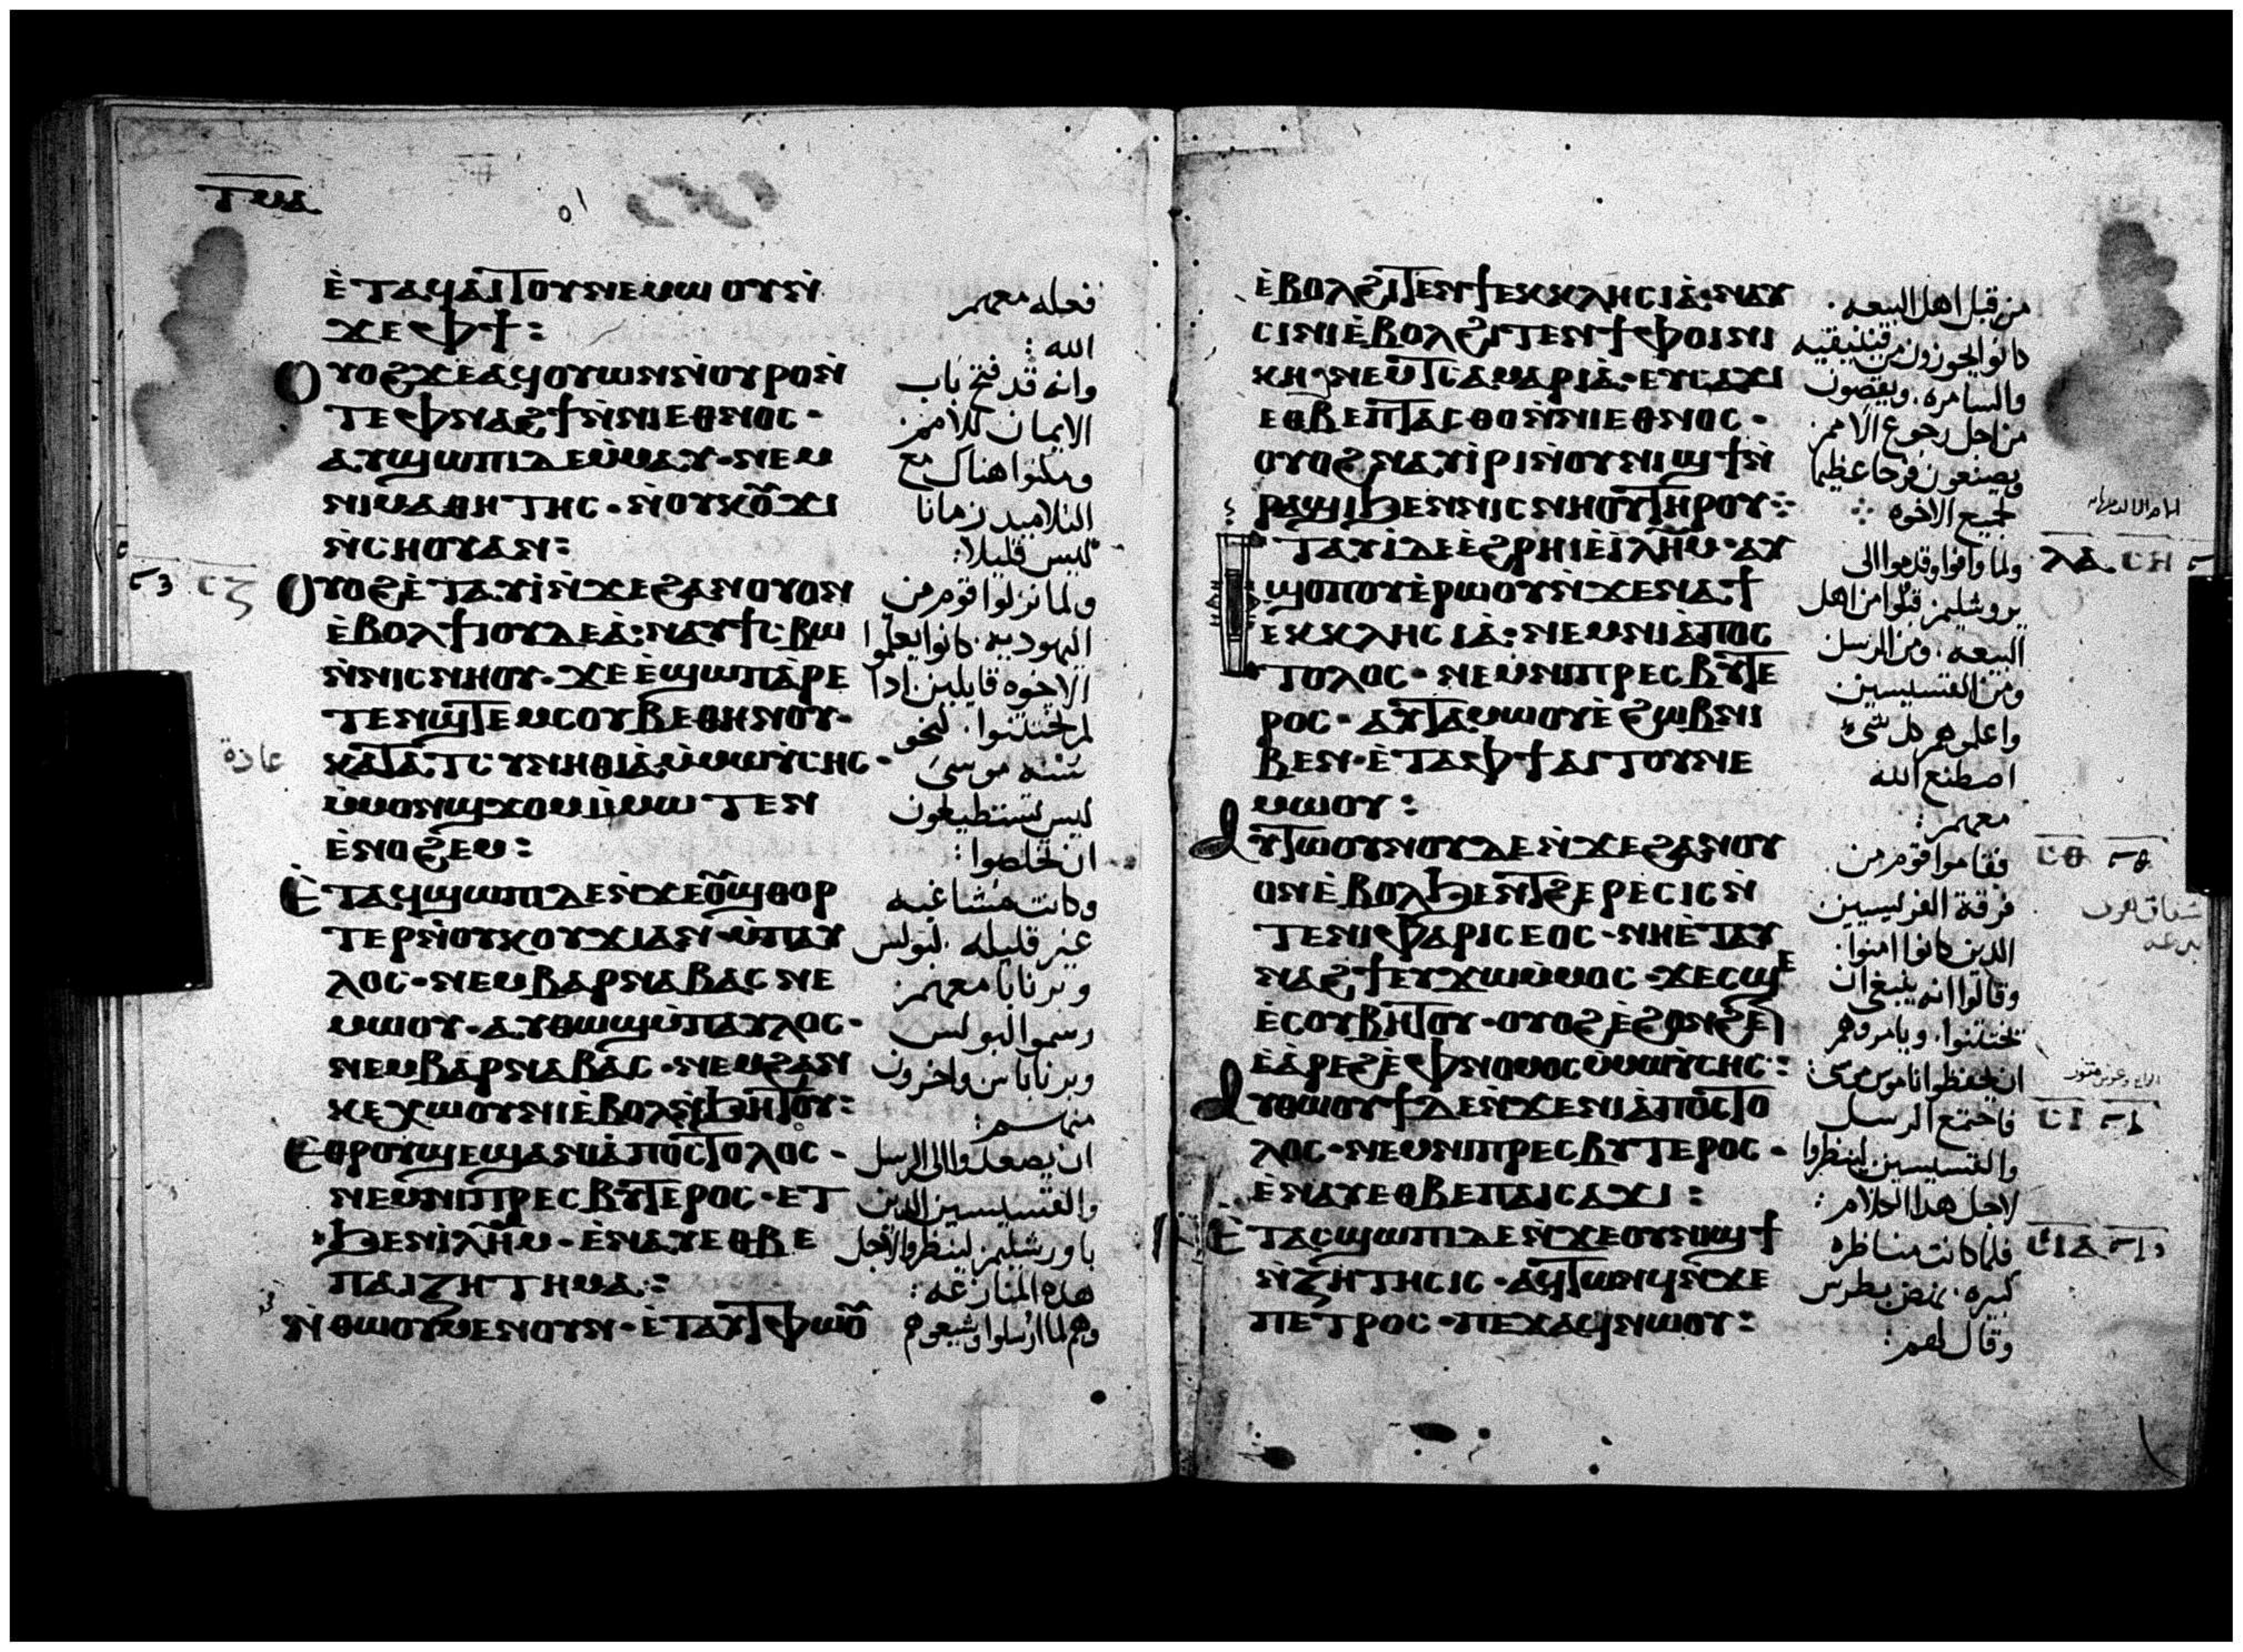 ⲧⲙⲁ
ⲉ̀ⲧⲁϥⲁⲓⲧⲟⲩⲛⲉⲙⲱⲟⲩⲛ̀
ϫⲉⲫϯ:
ⲟⲩⲟϩϫⲉⲁϥⲟⲩⲱⲛⲛ̀ⲟⲩⲣⲟⲛ̀
ⲧⲉⲫⲛⲁϩϯⲛ̀ⲛⲓⲉⲑⲛⲟⲥ·
ⲁⲩϣⲱⲡⲓⲇⲉⲙ̀ⲙⲁⲩ·ⲛⲉⲙ
ⲛⲓⲙⲁⲑⲏⲧⲏⲥ·ⲛ̀ⲟⲩⲕⲟⲩϫⲓ
ⲛ̀ⲥⲏⲟⲩⲁⲛ:
ⲟⲩⲟϩⲉ̀ⲧⲁⲩⲓ̀ⲛ̀ϫⲉϩⲁⲛⲟⲩⲟⲛ
ⲉ̀ⲃⲟⲗϯⲓⲟⲩⲇⲉⲁ̀:ⲛⲁⲩϯⲥⲃⲱ
ⲛ̀ⲛⲓⲥⲛⲏⲟⲩ·ϫⲉⲉ̀ϣⲱⲡⲁ̀ⲣⲉ
ⲧⲉⲛϣⲧⲉⲙⲥⲟⲩⲃⲉⲑⲏⲛⲟⲩ·
ⲕⲁⲧⲁⲧⲥⲩⲛⲏⲑⲓⲁ̀ⲙ̀ⲙⲱⲩ̀ⲥⲏⲥ·
ⲙ̀ⲙⲟⲛϣϫⲟⲙⲙ̀ⲙⲱⲧⲉⲛ
ⲉ̀ⲛⲟϩⲉⲙ:
ⲉ̀ⲧⲁϥϣⲱⲡⲓⲇⲉⲛ̀ϫⲉⲟⲩϣⲑⲟⲣ
ⲧⲉⲣⲛ̀ⲟⲩⲕⲟⲩϫⲓⲁⲛ·ⲙ̀ⲡⲁⲩ
ⲗⲟⲥ·ⲛⲉⲙⲃⲁⲣⲛⲁⲃⲁⲥⲛⲉ
ⲙⲱⲟⲩ·ⲁⲩⲑⲱϣⲙ̀ⲡⲁⲩⲗⲟⲥ·
ⲛⲉⲙⲃⲁⲣⲛⲁⲃⲁⲥ·ⲛⲉⲙϩⲁⲛ
ⲕⲉⲭⲱⲟⲩⲛⲓⲉ̀ⲃⲟⲗⲛ̀ϧⲏⲧⲟⲩ:
ⲉⲑⲣⲟⲩϣⲉϣⲁⲛⲓⲁ̀ⲡⲟⲥⲧⲟⲗⲟⲥ·
ⲛⲉⲙⲛⲓⲡⲣⲉⲥⲃⲩⲧⲉⲣⲟⲥ·ⲉⲧ
ϧⲉⲛⲓ̀ⲗⲏⲙ·ⲉ̀ⲛⲁⲩⲉⲑⲃⲉ
ⲡⲁⲓⲍⲏⲧⲏⲙⲁ:
ⲛ̀ⲑⲱⲟⲩⲙⲉⲛⲟⲩⲛ·ⲉ̀ⲧⲁⲩⲧⲫⲱⲟⲩ
فعله معهم
الله:
وانه قد فتح باب
الايمان للامم
ومكثوا هناك مع
التلاميد زمانا
ليس قليلا:
ولما نزلوا قوم من
اليهوديه. كانوا يعلموا
الاخوه قايلين ادا
لم تختتنوا. لنحو
سنه موسى
ليس تستطيعون
ان تخلصوا:
وكانت مشاغبه
غير قليله. لبولس
وبرنابا معهم
رسموا لبولس
وبرناباس واخرون
منهم:
ان يصعدوا الى الرسل
والقسيسين الذين
باورشليم لينظروا لاجل
هده المنازعه:
وهم لما ارسلوا وشيعوهم
ⲥⲍ
عادة
ⲉ̀ⲃⲟⲗϩⲓⲧⲉⲛϯⲉⲕⲕⲗⲏⲥⲓⲁ̀·ⲛⲁⲩ
ⲥⲓⲛⲓⲉ̀ⲃⲟⲗϩⲓⲧⲉⲛϯⲫⲟⲓⲛⲓ
ⲕⲏ·ⲛⲉⲙⲧⲥⲁⲙⲁⲣⲓⲁ̀·ⲉⲩⲥⲁϫⲓ
ⲉⲑⲃⲉⲡⲧⲁⲥⲑⲟⲛ̀ⲛⲓⲉⲑⲛⲟⲥ·
ⲟⲩⲟϩⲛⲁⲩⲓ̀ⲣⲓⲛ̀ⲟⲩⲛⲓϣϯⲛ̀
ⲣⲁϣⲓϧⲉⲛⲛⲓⲥⲛⲏⲟⲩⲧⲏⲣⲟⲩ:
ⲉⲧⲁⲩⲓ̀ⲇⲉⲉ̀ϩⲣⲏⲓⲉ̀ⲓ̀ⲗⲏⲙ·ⲁⲩ
ϣⲟⲡⲟⲩⲉ̀ⲣⲱⲟⲩⲛ̀ϫⲉⲛⲁϯ
ⲉⲕⲕⲗⲏⲥⲓⲁ̀·ⲛⲉⲙⲛⲓⲁ̀ⲡⲟⲥ
ⲧⲟⲗⲟⲥ·ⲛⲉⲙⲛⲓⲡⲣⲉⲥⲃⲩⲧⲉ
ⲣⲟⲥ·ⲁⲩⲧⲁⲙⲱⲟⲩⲉ̀ϩⲱⲃⲛⲓ
ⲃⲉⲛ·ⲉ̀ⲧⲁⲫϯⲁⲓⲧⲟⲩⲛⲉ
ⲙⲱⲟⲩ:
ⲁⲩⲧⲱⲟⲩⲛⲟⲩⲇⲉⲛ̀ϫⲉϩⲁⲛⲟⲩ
ⲟⲛⲉ̀ⲃⲟⲗϧⲉⲛⲧϩⲉⲣⲉⲥⲓⲥⲛ̀
ⲧⲉⲛⲓⲫⲁⲣⲓⲥⲉⲟⲥ·ⲛⲏⲉ̀ⲧⲁⲩ
ⲛⲁϩϯⲉⲩϫⲱⲙ̀ⲙⲟⲥ·ϫⲉⲥϣⲉ
ⲉ̀ⲥⲟⲩⲃⲏⲧⲟⲩ·ⲟⲩⲟϩⲉ̀ϩⲟⲛϩⲉⲛ
ⲉ̀ⲁ̀ⲣⲉϩⲉ̀ⲫⲛⲟⲙⲟⲥⲙ̀ⲙⲱⲩ̀ⲥⲏⲥ:
ⲁⲩⲑⲱⲟⲩϯⲇⲉⲛ̀ϫⲉⲛⲓⲁ̀ⲡⲟⲥⲧⲟ
ⲗⲟⲥ·ⲛⲉⲙⲛⲓⲡⲣⲉⲥⲃⲩⲧⲉⲣⲟⲥ·
ⲉ̀ⲛⲁⲩⲉⲑⲃⲉⲡⲁⲓⲥⲁϫⲓ:
ⲉ̀ⲧⲁⲥϣⲱⲡⲓⲇⲉⲛ̀ϫⲉⲟⲩⲛⲓϣϯ
ⲛ̀ⲍⲏⲧⲏⲥⲓⲥ·ⲁϥⲧⲱⲛϥⲛ̀ϫⲉ
ⲡⲉⲧⲣⲟⲥ·ⲡⲉϫⲁϥⲛⲱⲟⲩ:
من قبل اهل البيعه.
كانوا يجوزون من فينيقيه
والسامره. ويقصون
من اجل رجوع الامم
ويصنعون فرحا عظيما
لجميع الاخوه
ولما وافوا وقدموا الى
يروشليم قبلوا من اهل
البيعه. ومن الرسل
ومن القسيسين
واعلموهم كل شى
اصطنع الله
معهم:
فقاموا قوم من
فرقة الفريسيين
الدين كانوا امنوا.
وقالوا انه ينبغى ان
تختتنوا. ويامروهم
ان يحفظوا ناموس موسى:
فاجتمع الرسل
والقسيسين لينظروا
لاجل هدا الكلام:
فلما كانت مناظره
كبيره. نهض بطرس
وقال لهم:
ⲗⲁ ⲥⲏ
ⲥⲑ
ⲥⲓ
ⲥⲓⲁ